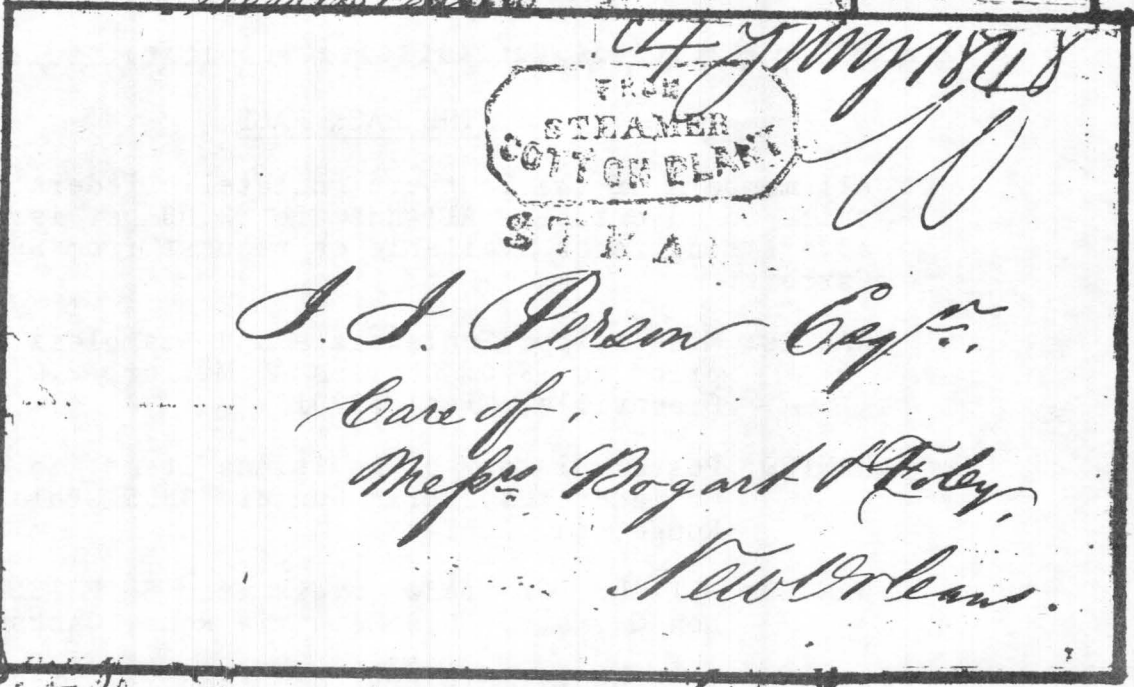 14 Jany 1848
FROM
STEAMER
COTTON PLANT
10
STEA
J J. Person Esqr.
Care of
Messrs Bogart & Foley,
New Orleans.